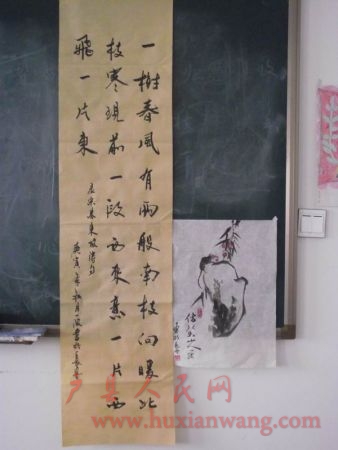 一樹春風有兩般南枝向暖北
枝寒現前一段西來意一片西
飛一片東
東坡詩句
庚寅年秋月
户县人民网
www.huxianwang.com